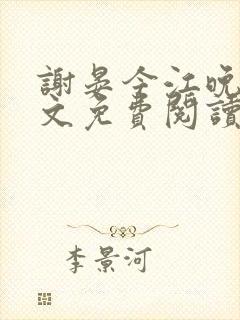 謝晏今江晚
文免費閱讀
李景河